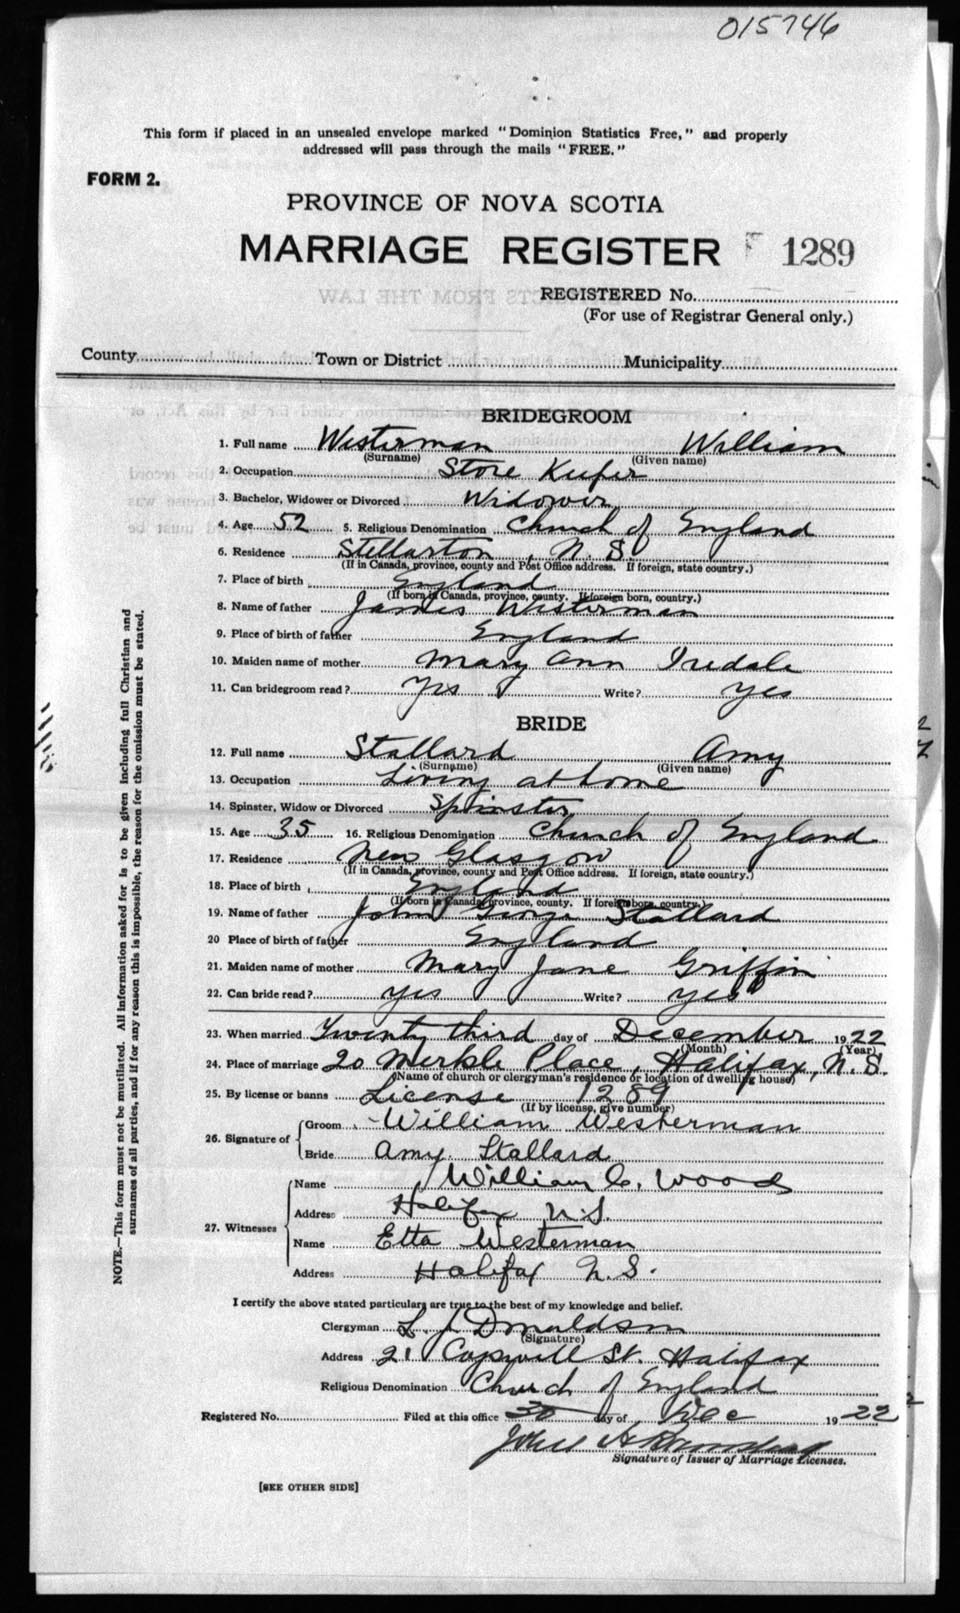 015746
This form if placed in an unsealed envelope marked "Dominion Statistics Free," and properly
addressed will pass through the mails "FREE."
FORM 2.
PROVINCE OF NOVA SCOTIA
MARRIAGE REGISTER 1289
REGISTERED No.
(For use of Registrar General only.)
County Town or District Municipality
BRIDEGROOM
1. Full name Westerman William
(Surname) (Given name)
2. Occupation Store Keeper
3. Bachelor, Widower or Divorced Widower
4. Age 52 5. Religious Denomination Church of England
6. Residence Stellarton, N. S.
(If in Canada, province, county and Post Office address. If foreign, state country.)
7. Place of birth England
(If born in Canada, province, county. If foreign born, country.)
8. Name of father James Westerman
9. Place of birth of father England
10. Maiden name of mother Mary Ann Iredale
11. Can bridegroom read? Yes Write? yes
BRIDE
12. Full name Stallard Amy
(Surname) (Given name)
13. Occupation Living at home
14. Spinster, Widow or Divorced Spinster
15. Age 35 16. Religious Denomination Church of England
17. Residence New Glasgow
(If in Canada, province, county and Post Office address. If foreign, state country.)
18. Place of birth England
(If born in Canada, province, county. If foreign born, country.)
19. Name of father John George Stallard
20 Place of birth of father England
21. Maiden name of mother Mary Jane Griffin
22. Can bride read? yes Write? yes
23. When married Twenty third day of December 1922
(Month) (Year)
24. Place of marriage 20 Merkle Place, Halifax, N. S.
(Name of church or clergyman's residence or location of dwelling house)
25. By license or banns License 1289
(If by license, give number)
26. Signature of Groom William Westerman
Bride Amy Stallard
27. Witnesses Name William C. Wood
Address Halifax N.S.
Name Etta Westerman
Address Halifax N. S.
I certify the above stated particulars are true to the best of my knowledge and belief.
Clergyman L. J. Donaldson
(Signature)
Address 21 St. Halifax
Religious Denomination Church of England
Registered No. Filed at this office 30 day of Dec 1922
Signature of Issuer of Marriage Licenses.
[SEE OTHER SIDE]
NOTE.—This form must not be mutilated. All information asked for is to be given including full Christian and
surnames of all parties, and if for any reason this is impossible, the reason for the omission must be stated.